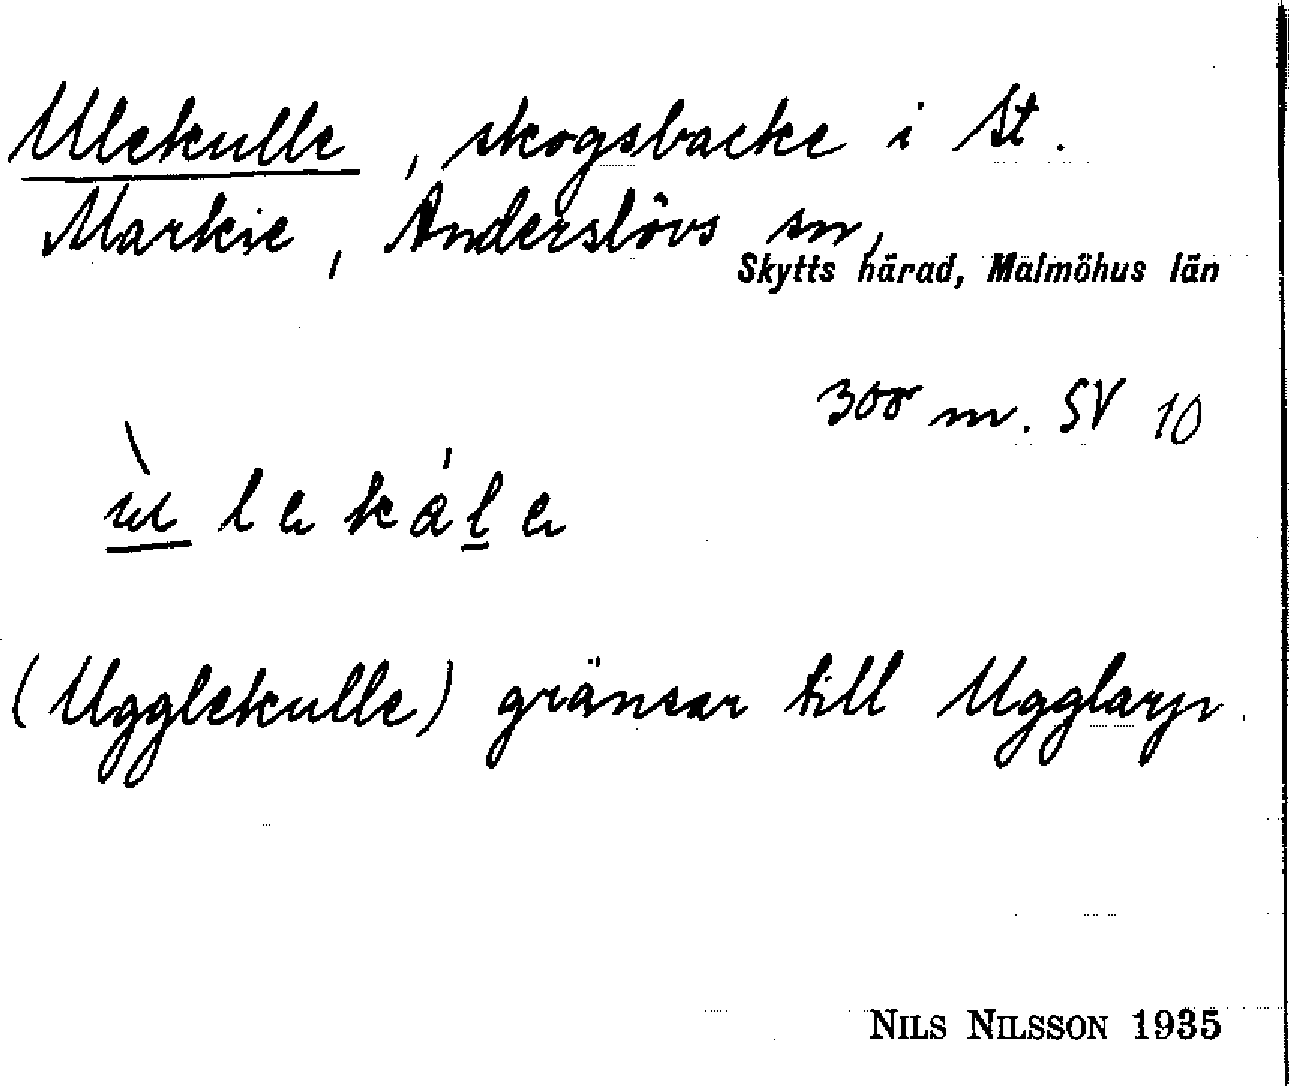 Ulekulle, skogsbacke i St.
Markie, Anderslövs sn,
Skytts härad, Malmöhus län
300 m. SV 10
(Ugglekulle) gränsar till Ugglarp.
NILS NILSSON 1935